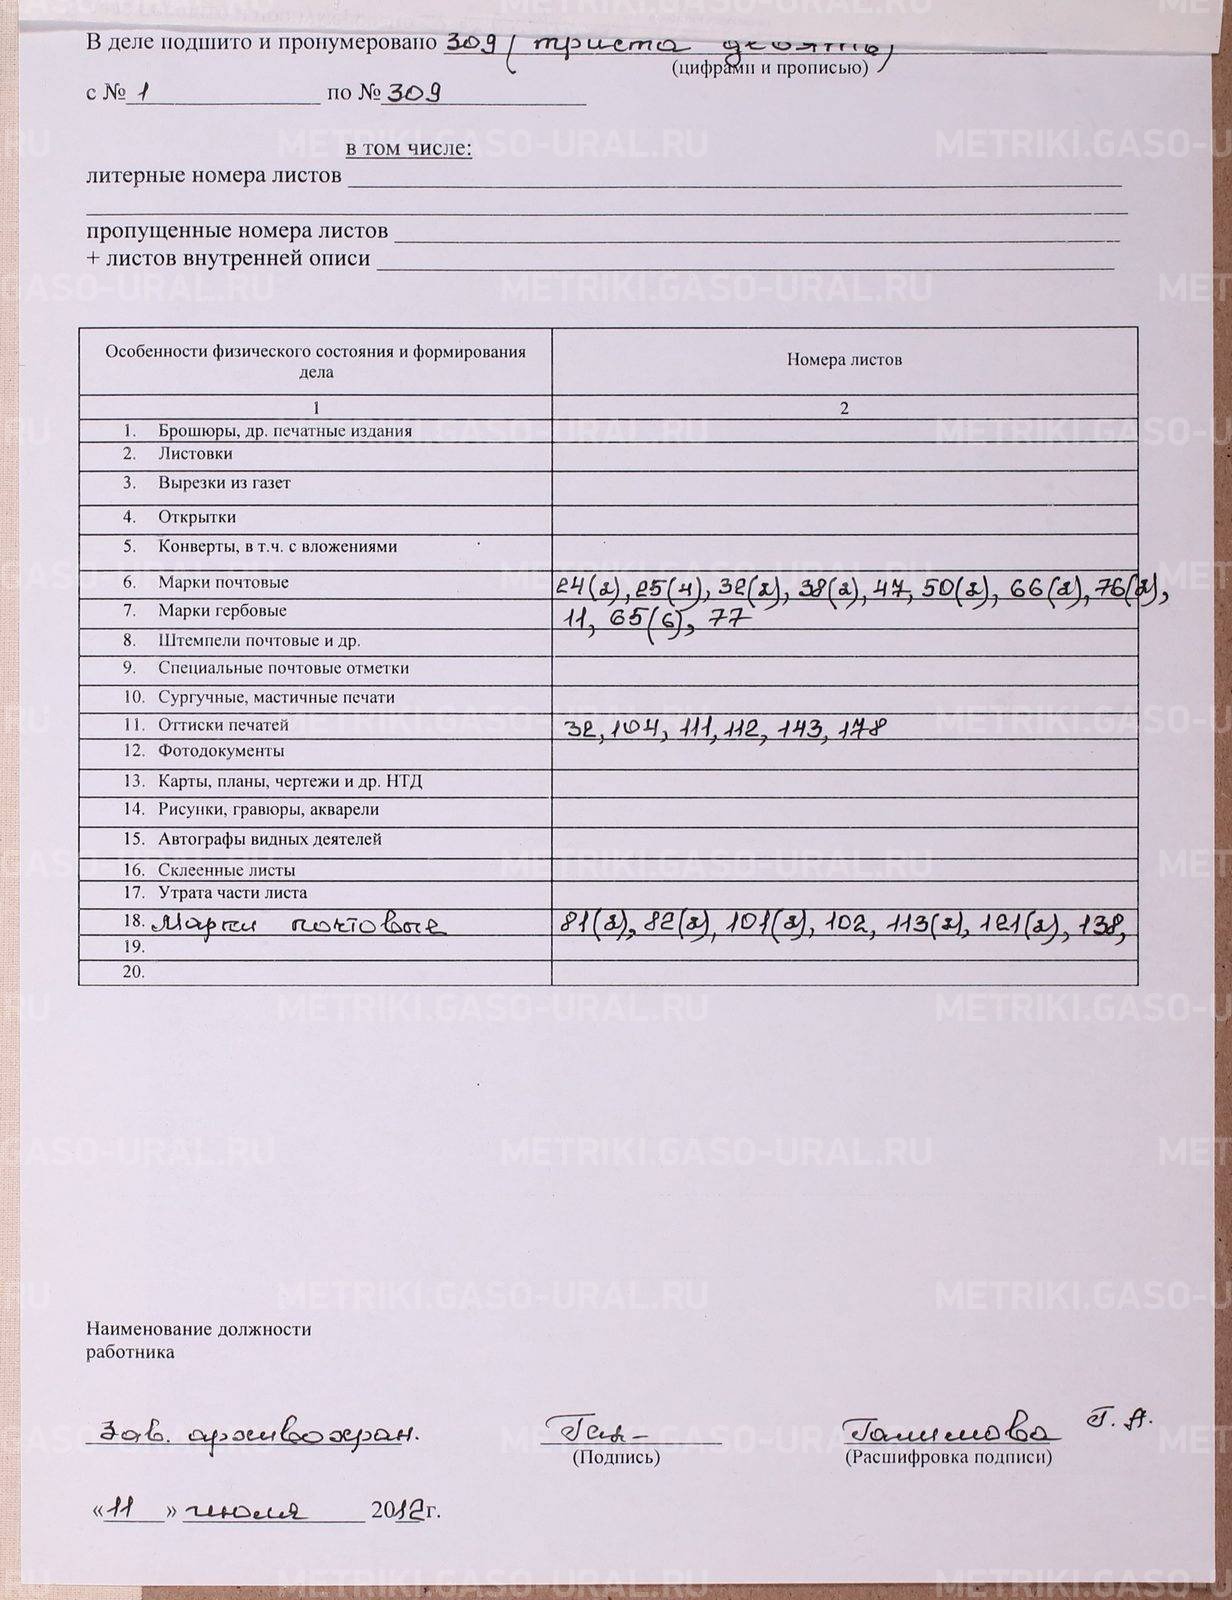 В деле подшито и пронумеровано 309 (триста девять)
(цифрами и прописью)
с № 1 по № 309
в том числе:
литерные номера листов
пропущенные номера листов
+ листов внутренней описи
Особенности физического состояния и формирования дела
Номера листов
1 2
1. Брошюры, др. печатные издания
2. Листовки
3. Вырезки из газет
4. Открытки
5. Конверты, в т.ч. с вложениями
6. Марки почтовые 24(2), 25(4), 32(2), 38(2), 47, 50(2), 66(2), 76(2),
7. Марки гербовые 11, 65(6), 77
8. Штемпели почтовые и др.
9. Специальные почтовые отметки
10. Сургучные, мастичные печати
11. Оттиски печатей 32, 104, 111, 112, 143, 178
12. Фотодокументы
13. Карты, планы, чертежи и др. НТД
14. Рисунки, гравюры, акварели
15. Автографы видных деятелей
16. Склеенные листы
17. Утрата части листа
18. Марки почтовые 81(2), 82(2), 101(2), 102, 113(2), 121(2), 138,
19.
20.
Наименование должности
работника
Зав. архивохран. Галимова Г.А.
(Подпись) (Расшифровка подписи)
«11» июля 2012г.
METRIKI.GASO-URAL.RU